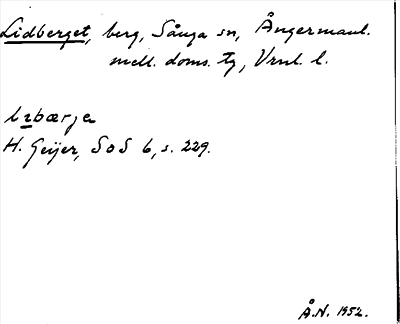 Lidberget, berg, Sånga sn, Ångermanl.
mell. doms. tg, Vrnl. l.
H. Geijer, SoS 6, s. 229.
Å.N. 1952.